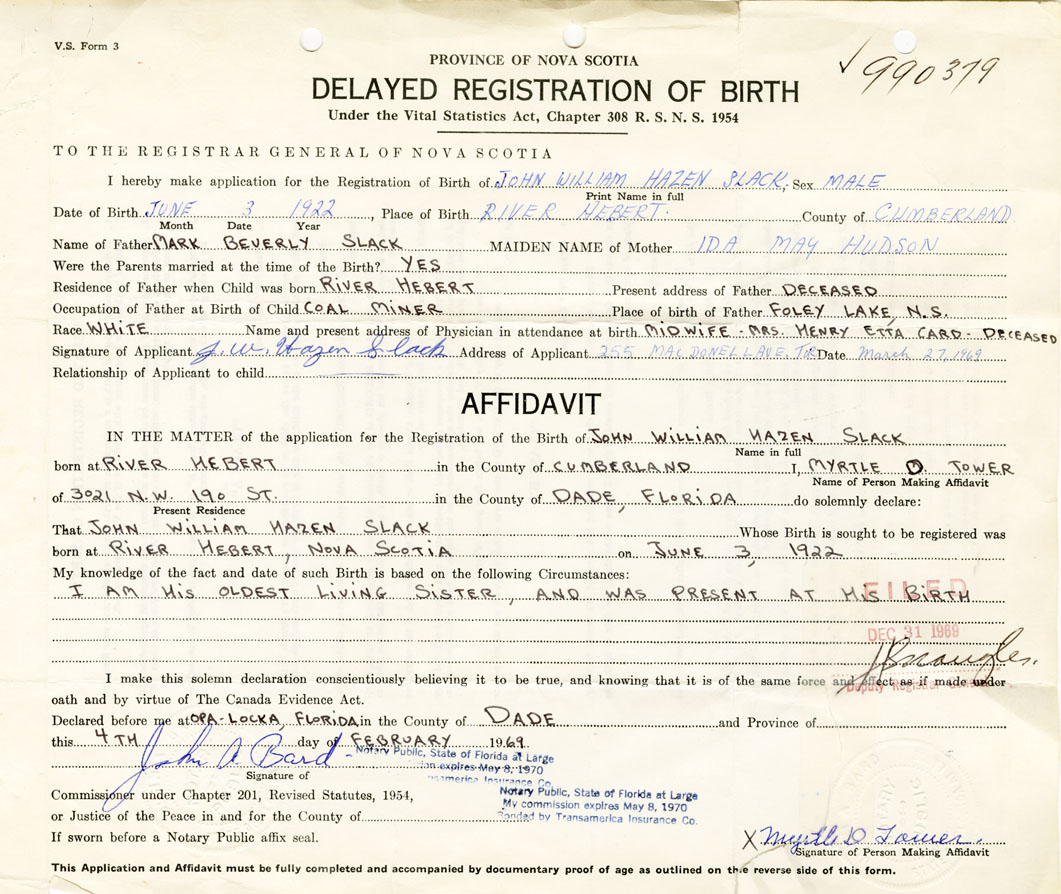 V.S. Form 3
✓990379
PROVINCE OF NOVA SCOTIA
DELAYED REGISTRATION OF BIRTH
Under the Vital Statistics Act, Chapter 308 R. S. N. S. 1954
TO THE REGISTRAR GENERAL OF NOVA SCOTIA
I hereby make application for the Registration of Birth of JOHN WILLIAM HAZEN SLACK, Sex MALE
Print Name in full
Date of Birth JUNE 3 1922, Place of Birth RIVER HEBERT. County of CUMBERLAND
Month Date Year
Name of Father MARK BEVERLY SLACK MAIDEN NAME of Mother IDA MAY HUDSON
Were the Parents married at the time of the Birth? YES
Residence of Father when Child was born RIVER HEBERT Present address of Father DECEASED
Occupation of Father at Birth of Child COAL MINER Place of birth of Father FOLEY LAKE, N.S.
Race WHITE Name and present address of Physician in attendance at birth MIDWIFE - MRS. HENRY ETTA CARD - DECEASED
Signature of Applicant J. W. Hazen Slack Address of Applicant 255 MACDONELL AVE, TOR Date March 27, 1969
Relationship of Applicant to child
AFFIDAVIT
IN THE MATTER of the application for the Registration of the Birth of JOHN WILLIAM HAZEN SLACK
Name in full
born at RIVER HEBERT in the County of CUMBERLAND I, MYRTLE D. TOWER
Name of Person Making Affidavit
of 3021 N.W. 190 ST. in the County of DADE, FLORIDA do solemnly declare:
Present Residence
That JOHN WILLIAM HAZEN SLACK Whose Birth is sought to be registered was
born at RIVER HEBERT, NOVA SCOTIA on JUNE 3, 1922
My knowledge of the fact and date of such Birth is based on the following Circumstances:
I AM HIS OLDEST LIVING SISTER, AND WAS PRESENT AT HIS BIRTH
FILED
DEC 31 1969
I make this solemn declaration conscientiously believing it to be true, and knowing that it is of the same force and effect as if made under
Deputy Registrar
oath and by virtue of The Canada Evidence Act.
Declared before me at OPA-LOCKA, FLORIDA in the County of DADE and Province of
this 4TH day of FEBRUARY 1969
John A Bard
Notary Public, State of Florida at Large
expires May 8, 1970
Insurance Co.
Signature of
Commissioner under Chapter 201, Revised Statutes, 1954,
Notary Public, State of Florida at Large
My commission expires May 8, 1970
or Justice of the Peace in and for the County of
Bonded by Transamerica Insurance Co.
If sworn before a Notary Public affix seal.
X Myrtle D Tower
Signature of Person Making Affidavit
This Application and Affidavit must be fully completed and accompanied by documentary proof of age as outlined on the reverse side of this form.